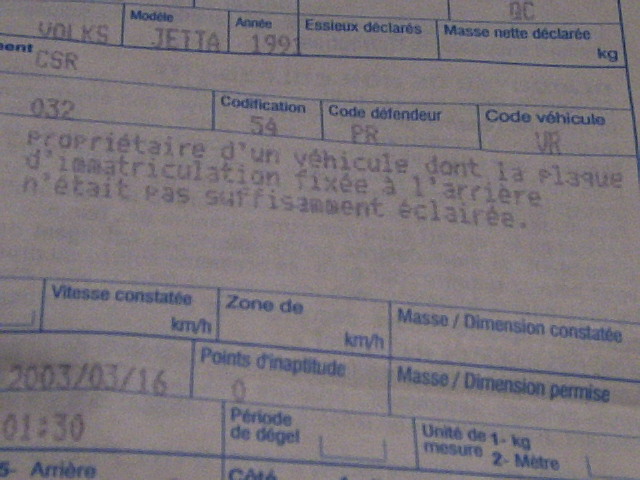 QC
Modèle Année Essieux déclarés Masse nette déclarée
VOLKS JETTA 1991 kg
ment CSR
Codification Code défendeur Code véhicule
032 54 PR VR
Propriétaire d'un véhicule dont la plaque
d'immatriculation fixée à l'arrière
n'était pas suffisamment éclairée.
Vitesse constatée Zone de Masse / Dimension constatée
km/h km/h
Points d'inaptitude Masse / Dimension permise
2003/03/16 0
01:30 Période de dégel Unité de mesure 1- kg
2- Mètre
5- Arrière Côté